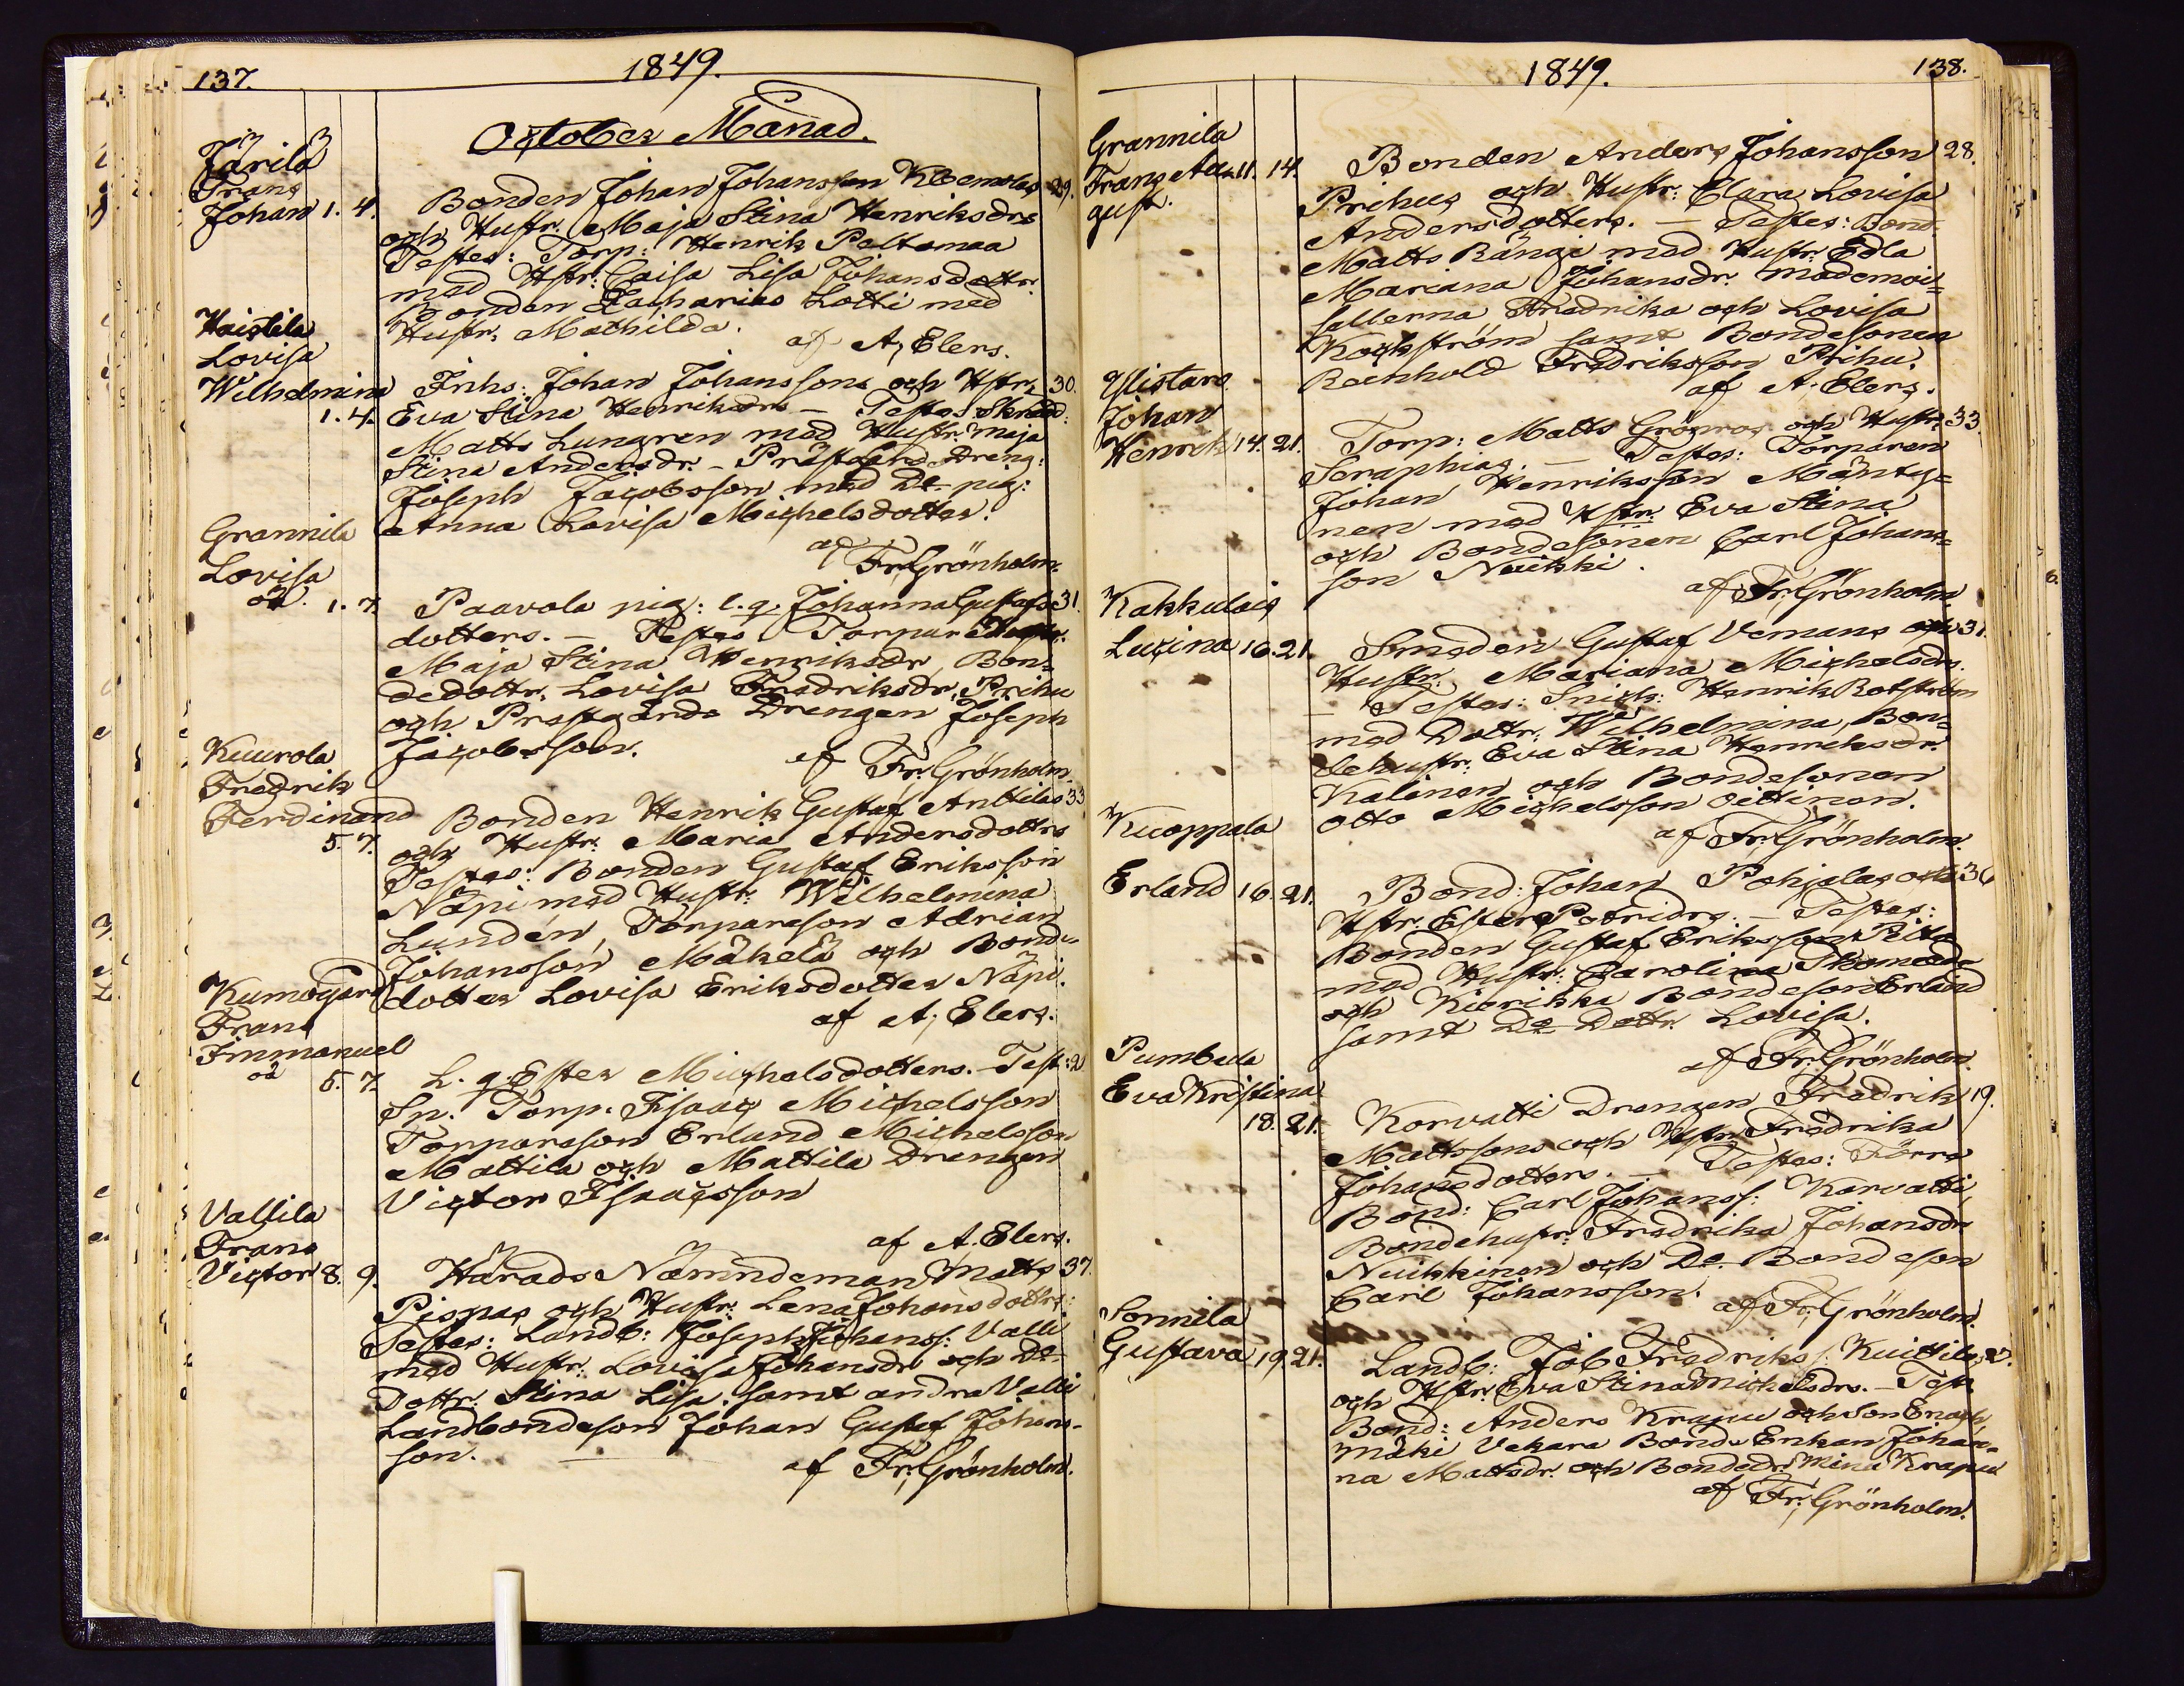 137. 1849.
October Månad.
Järilä
Frans
Johan 1. 4. Bonden Johan Johansson Klemolas 29.
och Hustr. Maja Stina Henriksdrs
Testes: Torp: Henrik Peltomaa
med Hstr. Caisa Lisa Johansdottr.
Bonden Zacharias Lotti med
Hustr. Mathilda.
af A, Elers.
Haistila
Lovisa
Wilhelmina 1. 4. Inhs: Johan Johanssons och Hstr. 30.
Eva Stina Henriksdrs – Testes Skrädd:
Matts Lungren med Hustr. Maja
Stina Andersdr. – Prästgårds Dreng:
Joseph Jacobsson med Do pig:
Anna Lovisa Michelsdotter.
af Fr, Grönholm.
Grannila
Lovisa
oä. 1. 7. Paavola pig: l. q. Johanna Gustafs 31.
dotters. – Testes Torpare
Maja Stina Henriksdr, Bon=
dedottr. Lovisa Fredriksdr. Prihu
och Prestgårds Drengen Joseph
Jacobsson.
af Fr. Grönholm.
Kuurola
Fredrik
Ferdinand
5. 7. Bonden Henrik Gustaf Anttilas 33
och Hustr. Maria Andersdottrs
Testes: Bonden Gustaf Eriksson
Näpi med Hustr. Wilhelmina
Lundén, Torpareson Adrian
Johansson Mäkelä och Bonde=
dotter Lovisa Eriksdotter Näpi.
af A, Elers.
Kumogård
Frans
Immanuel
oä 5. 7. L. q. Ester Michelsdotters. – Test: 2
Sn. Torp. Isaac Michelsson
Torpareson Erland Michelsson
Mattila och Mattila Drengen
Victor Isaacsson
af A. Elers.
Vallila
Frans
Victor 8. 9. Härads Nämndeman Matts 37.
Pispas och Hustr: Lena Johansdottrs:
Testes: Landb: Joseph Johanss: Valli
med Hustr. Lovisa Johansdr och Do
Dottr. Stina Lisa. samt andra Valli
Landbondeson Johan Gustaf Johans-
son.
af Fr, Grönholm.
1849. 138.
Grannila
Frans Au=
gust. 11. 14. Bonden Anders Johansson 28.
Prihus och Hustr: Clara Lovisa
Andersdotters. – Testes: Bond.
Matts Ränge med Hustr. Edla
Mariana Johansdr. Mademoi=
sellerna Fredrika och Lovisa
Kockström samt Bondesonen
Reinhold Fredriksson Prihu.
af A. Elers.
Ylistaro
Johan
Henrik 14. 21. Torp: Matts Grönroos och Hustr. 33.
Seraphias. – Testes: Torparen
Johan Henriksson Mänty=
nen med Hstr. Eva Stina
och Bondesonen Carl Johans=
son Nuikki.
af Fr, Grönholm.
Kakkulais
Lucina 16. 21. Smeden Gustaf Vemans och 31.
Hustr. Mariana Michelsdrs.
– Testes: Snick: Henrik Rotström
med Dottr. Wilhelmina, Bon=
dehustr. Eva Stina Henriksdr.
Kalinen och Bondesonen
Otto Michelsson Oittinen.
af Fr, Grönholm.
Kuoppala
Erland 16. 21. Bond: Johan Pohjalas och 36
Hstr. Ester Petridrs. – Testes:
Bonden Gustaf Eriksson
med Hustr. Carolina
och Kierikka Bondeson Erland
samt Do Dottr. Lovisa.
af Fr. Grönholm.
Pumbula
Eva Kristina
18. 21. Korvatti Drengen Fredrik 19.
Mattssons och Hstr. Fredrika
Johansdotters. – Testes: Förre
Bond: Carl Johanss: Korvatti
Bondehustr. Fredrika Johansdr
Nuikkinen och Do Bondeson
Carl Johansson.
af Fr, Grönholm.
Sonnila
Gustava 19. 21. Landb: Job Fredriks: Kuittila 27.
och Hstr. Eva Stina Michelsdrs. – Test
Bond: Anders Krapu och Son Enoch,
Mäki Vakara Bonde Enkan Johan-
na Mattsdr. och Bondedr. Mina Krapu
af Fr. Grönholm.